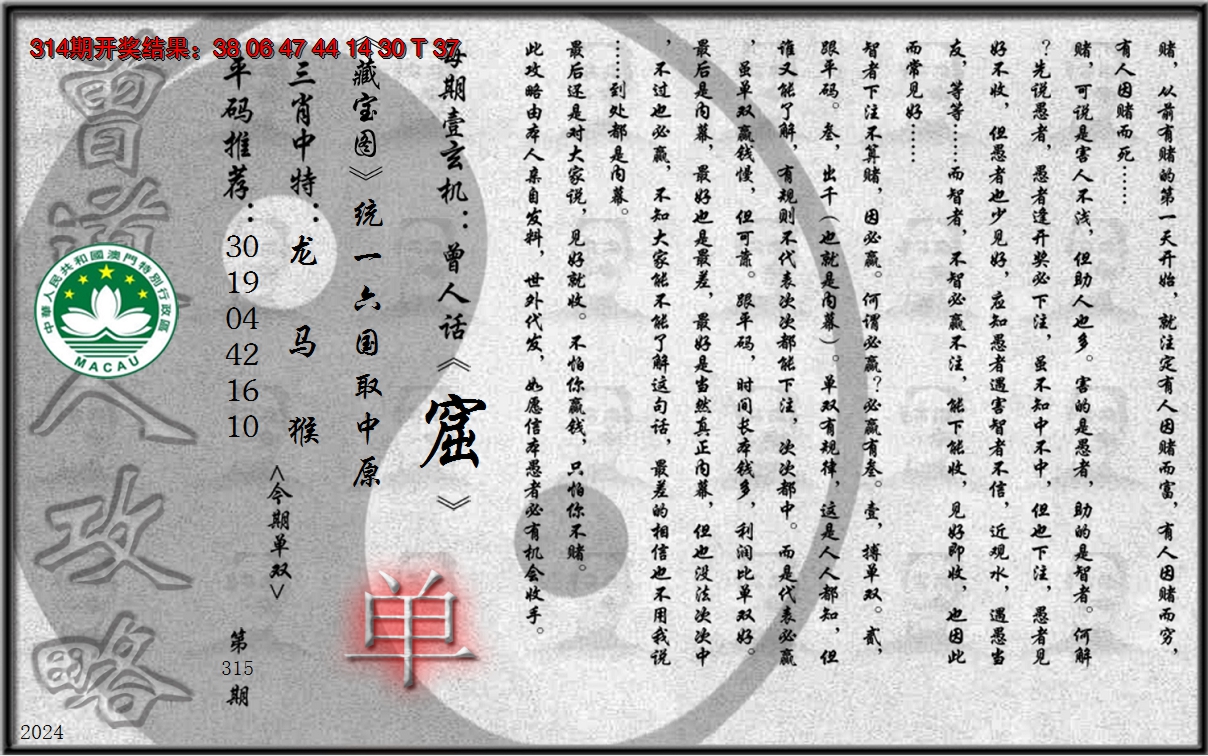 314期开奖结果：38 06 47 44 14 30 T 37
赌，从前有赌的第一天开始，就注定有人因赌而富，有人因赌而穷，
有人因赌而死……
赌，可说是害人不浅，但助人也多。害的是愚者，助的是智者。何解
？先说愚者，愚者逢开奖必下注，虽不知中不中，但也下注，愚者见
好不收，但愚者也少见好，应知愚者遇害智者不信，近观水，遇愚当
友，等等……而智者，不智必赢不注，能下能收，见好即收，也因此
而常见好……
智者下注不算赌，因必赢。何谓必赢？必赢有叁。壹，搏单双。贰，
跟平码。叁，出千（也就是内幕）。单双有规律，这是人人都知，但
谁又能了解，有规则不代表次次都能下注，次次都中。而是代表必赢
，虽单双赢钱慢，但可靠。跟平码，时间长本钱多，利润比单双好。
最后是内幕，最好也是最差，最好是当然真正内幕，但也没法次次中
，不过也必赢，不知大家能不能了解这句话，最差的相信也不用我说
……到处都是内幕。
最后还是对大家说，见好就收。不怕你赢钱，只怕你不赌。
此攻略由本人亲自发料，世外代发，如愿信本愚者必有机会收手。
每期壹玄机：曾人话《窟》
《藏宝图》统一六国取中原
单
三肖中特：龙 马 猴
<今期单双>
平码推荐：30 19 04 42 16 10
第315期
曾道人攻略
中華人民共和國澳門特別行政區
MACAU
2024